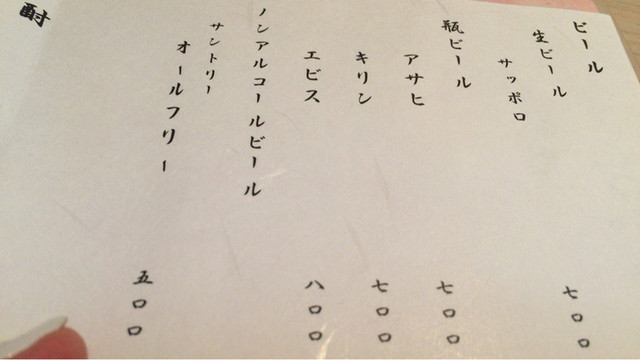 ビール
生ビール
サッポロ 七〇〇
瓶ビール
アサヒ 七〇〇
キリン 七〇〇
エビス 八〇〇
ノンアルコールビール
サントリー
オールフリー 五〇〇
酎